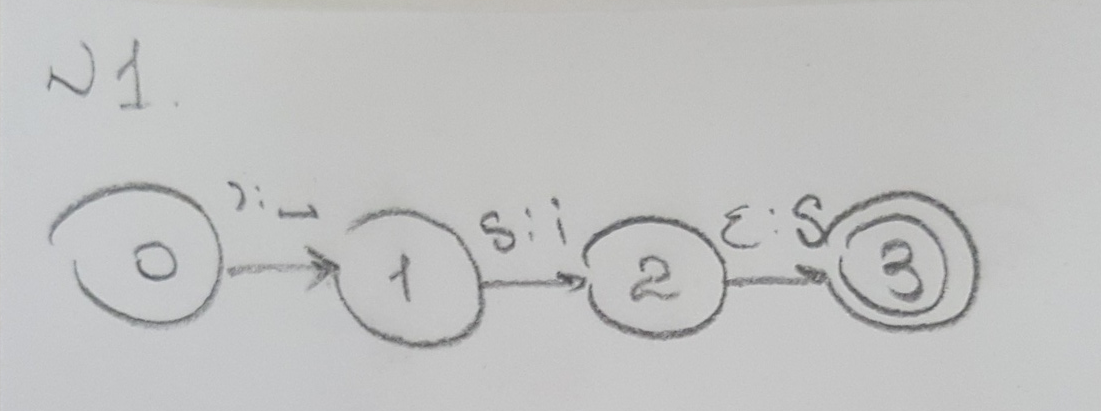 N1.
0 ':_ 1 s:i 2 ε:s 3